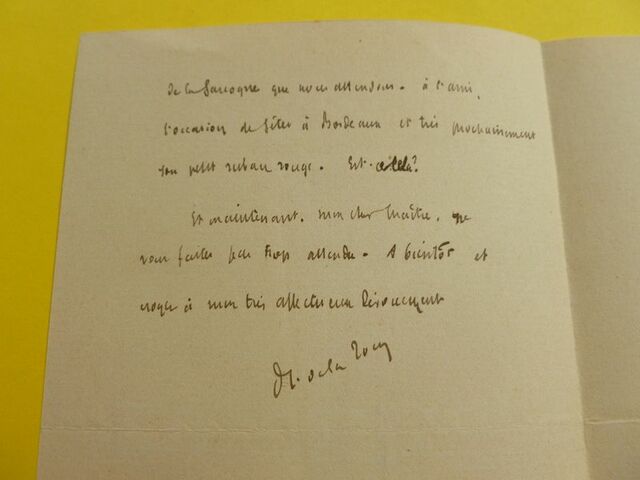 de la Gascogne que nous attendons. à l'ami,
l'occasion de fêter à Bordeaux et très prochainement
son petit ruban rouge. Est-ce cela?
Et maintenant, mon cher Maître, ne
vous faites pas trop attendre. A bientôt et
croyez à mon très affectueux Dévouement
de la